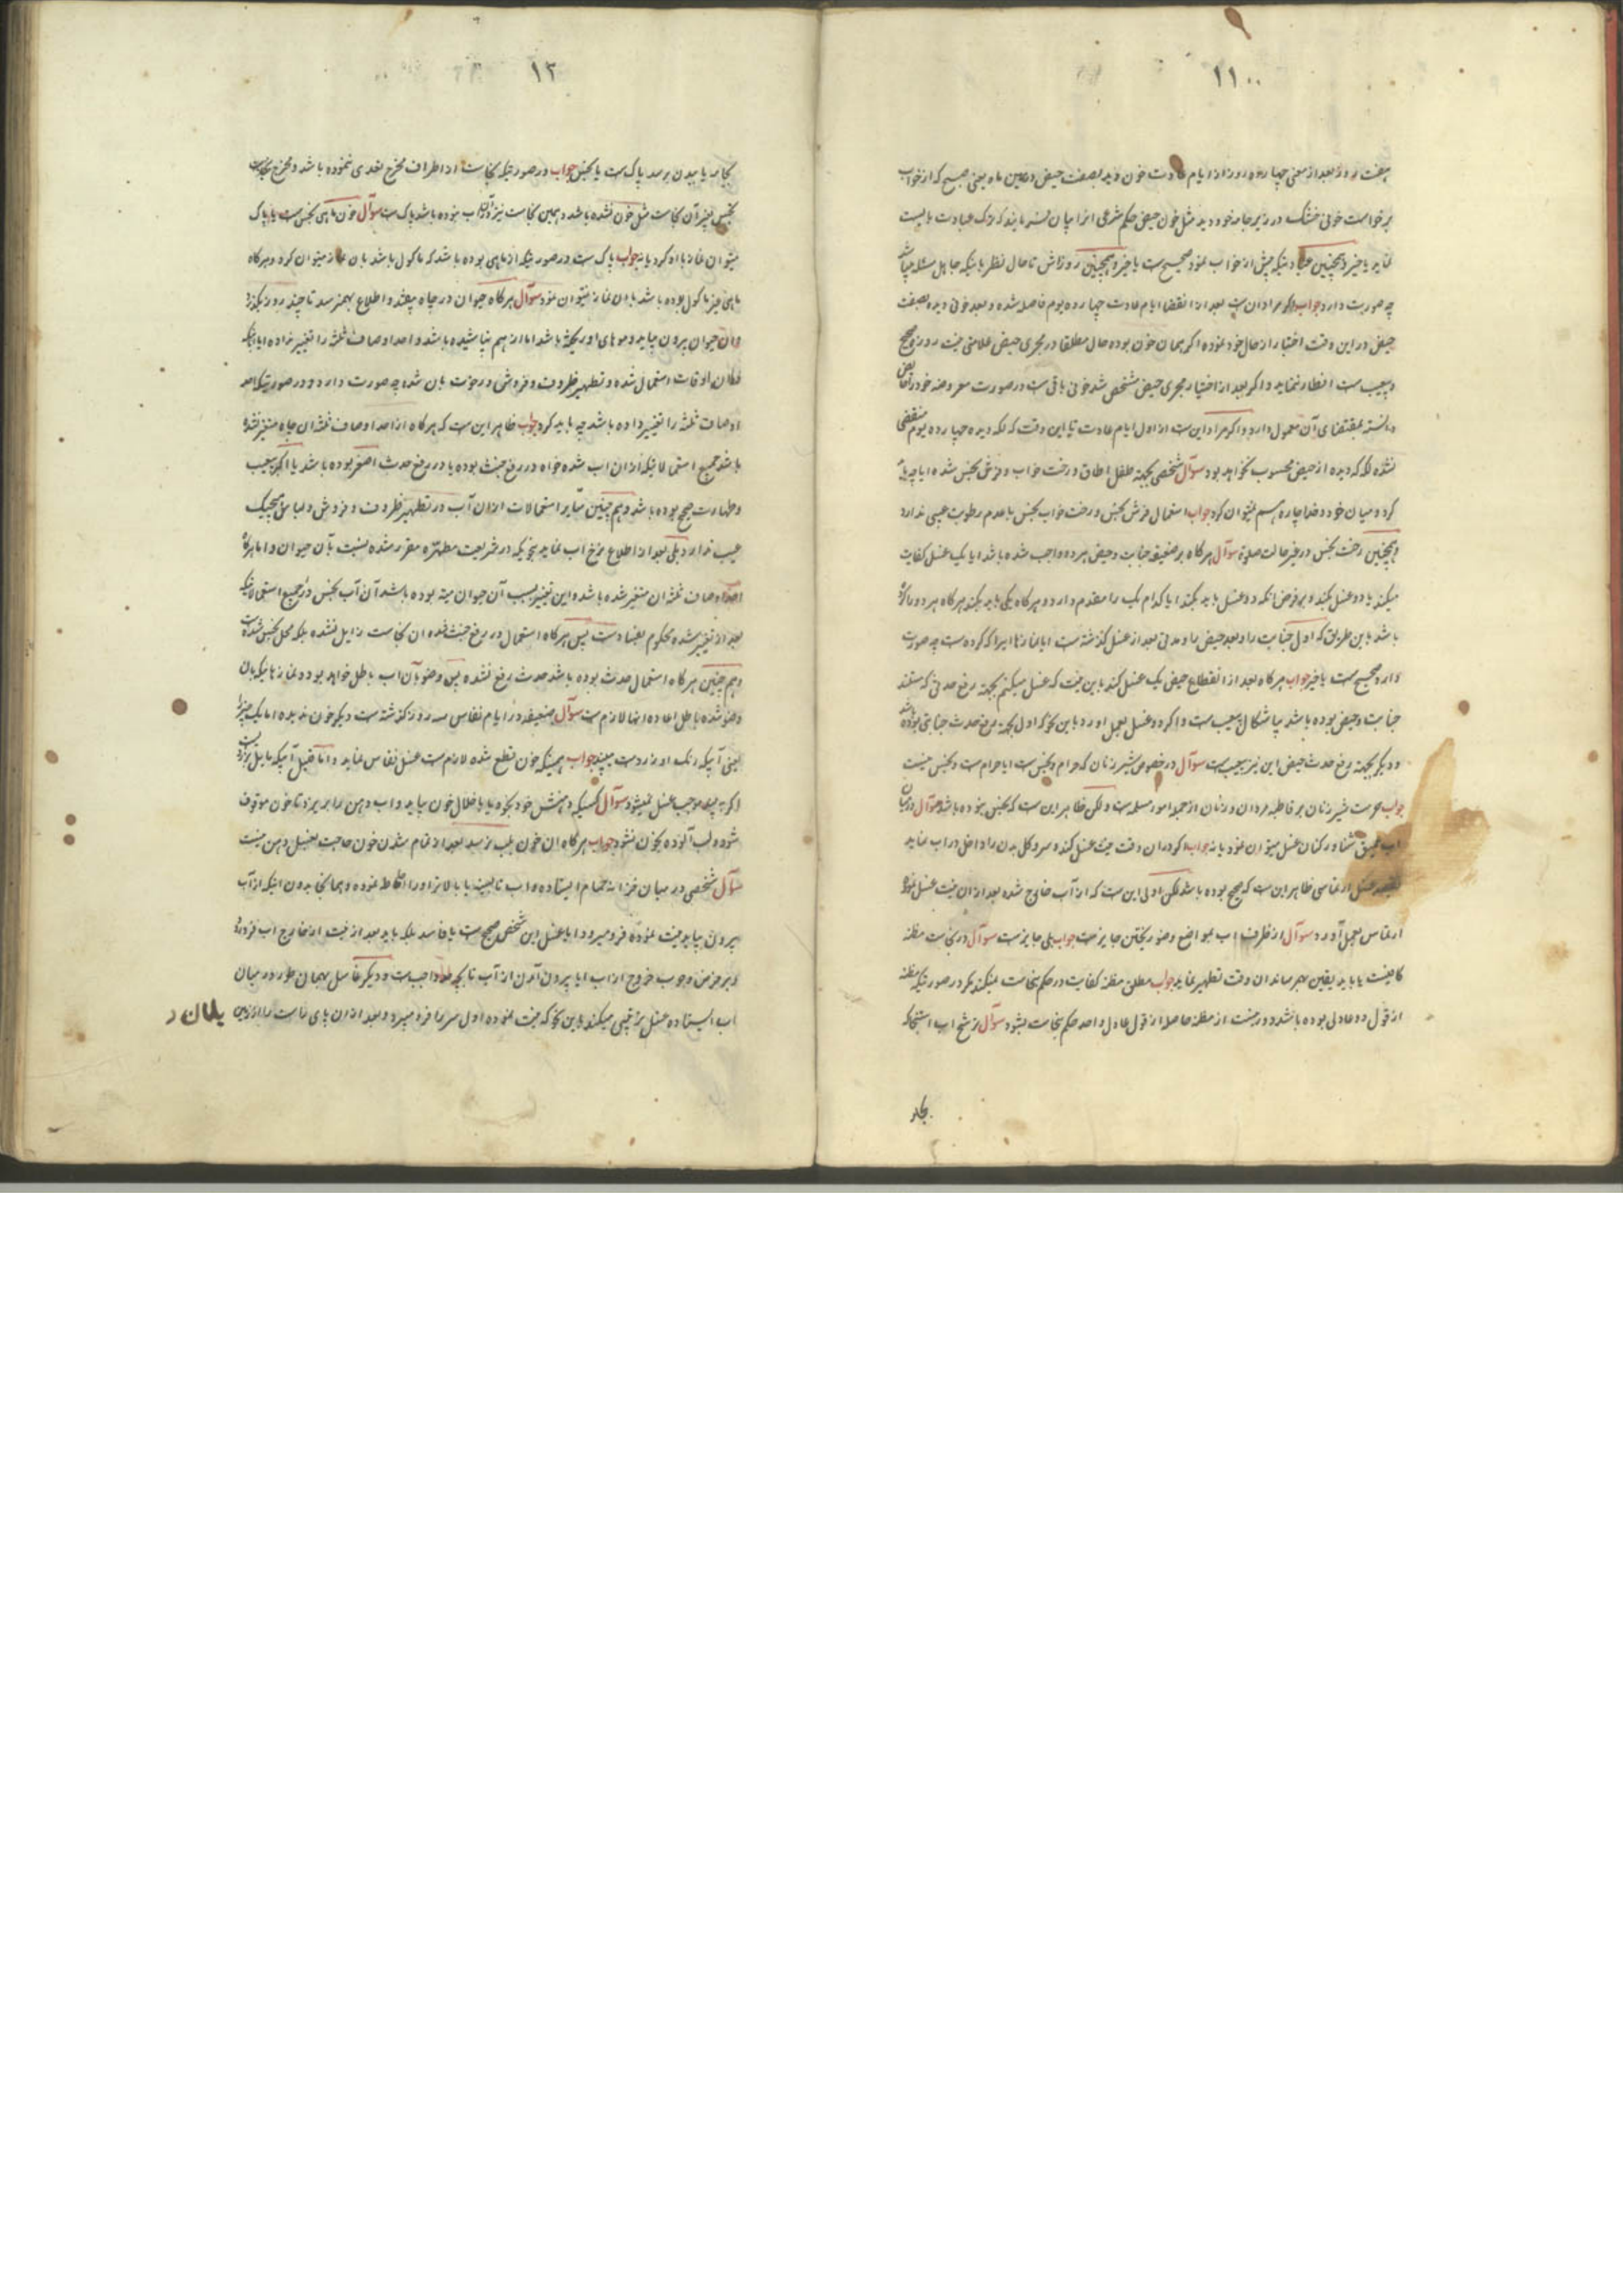 ۱۱
هفت روز بعد از معنی چهارده روز از ایام عادت خون دید بصفت حیض و همین ماه یعنی صبح که از خواب
برخواست خونی خشک در زیر جامه خود دید مثل خون حیض حکم شرعی انرا بیان فرمایند که ترک عبادت بایست
نماید یا خیر و همچنین پیش از خواب نمود صحیح است یا خیر و همچنین روزه اش تا حال نظر باینکه جاهل مسئله میباشد
چه صورت دارد جواب اگر مراد ان است بعد از انقضا ایام عادت چهارده یوم فاصله شده و بعد خونی دیده بصفت
حیض در این وقت اختبار از حال خود نموده اگر همان خون بوده حال مطلقا در مجری حیض علامتی نیست روزه صحیح
و بیعیب است افطار ننماید و اگر بعد از اختبار مجری حیض مشخص شد خونی باقی است در صورت معروضه خود را حایض
دانسته بمقتضای آن معمول دارد و اگر مراد این است از اول ایام عادت تا این وقت که لکه دیده چهارده یوم منقضی
نشده لکه که دیده از حیض محسوب نخواهد بود سوآل شخصی بجهته طفل اطاق و رخت خواب و فرش نجس شده ایا چه باید
کرد و میان خود و خدا چاره هم نمیتوان کرد جواب استعمال فرش نجس و رخت خواب نجس با عدم رطوبت عیبی ندارد
و همچنین رخت نجس در غیر حالت صلوة سوآل هر گاه بر ضعیفه جنابت و حیض هر دو واجب شده باشد ایا یک غسل کفایت
میکند یا دو غسل بکند و بر فرض انکه دو غسل باید بکند ایا کدام یک را مقدم دارد و هر گاه یکی باید بکند هر گاه هر دو را کرده
باشد باین طریق که اول جنابت را و بعد حیض را و مدتی بعد از غسل گذشته است ایا نمازها ایرا که کرده است چه صورت
دارد صحیح است یا خیر جواب هر گاه بعد از انقطاع حیض یک غسل کند باین نیت که غسل میکنم بجهته رفع حدثی که مستند
جنابت و حیض بوده باشد بیاشکال و بیعیب است و اگر دو غسل بعمل اورد باین نحو که اول بجهته رفع حدث جنابتی بوده باشد
و دیگر بجهته رفع حدث حیض این نیز بیعیب است سوآل در خصوص شیر زنان که حرام و نجس است ایا حرام است و نجس نیست
جواب حرمت شیر زنان بر قاطبه مردان و زنان از جمله امور مسلمه است و لکن ظاهر این است که نجس نبوده باشد سوآل در میان
اب عمیق شنا ور کنان غسل میتوان نمود یا نه جواب اگر در ان وقت نیت غسل کند و سر و کل بدن را داخل در اب نماید
بقصد غسل ارتماسی ظاهر این است که صحیح بوده باشد لکن اولی این است که از آب خارج شده بعد از ان نیت غسل نموده
ارتماس بعمل آورد سوآل از ظرف اب بمواضع وضو ریختن جایز است جواب بلی جایز است سوآل در نجاست مظنه
کافیست یا باید یقین بهم رساند ان وقت تطهیر نماید جواب مطلق مظنه کفایت در حکم نجاست نمیکند مگر در صورتیکه مظنه
از قول دو عادلی بوده باشد و در نیست از مظنه حاصله از قول عادل واحد حکم نجاست بشود سوآل ترشح اب استنجا که
بجامه
۱۲
بجامه یا ببدن برسد پاک است یا نجس جواب در صورتیکه نجاست از اطراف مخرج تعدی ننموده باشد و مخرج بنجاست
نجس بغیر آن نجاست مثل خون نشده باشد و همین نجاست نیز در آن اب نبوده باشد پاک است سوآل خون ماهی نجس است یا پاک
میتوان نماز با او کرد یا نه جواب پاک است در صورتیکه از ماهی بوده باشد که ماکول باشد بان نماز میتوان کرد و هر گاه
ماهی غیر ماکول بوده باشد بان نماز نمیتوان نمود سوآل هر گاه حیوان در چاه بیفتد و اطلاع بهم نرسد تا چند روز بگذرد
و ان حیوان بیرون بیاید و موهای او ریخته باشد اما از هم نپاشیده باشد و احد اوصاف ثلثه را تغییر نداده ایا اینکه
در ان اوقات استعمال شده و تطهیر ظروف و فروش و رخوت بان شده چه صورت دارد و در صورتیکه احد
اوصاف ثلثه را تغییر داده باشد چه باید کرد جواب ظاهر این است که هر گاه از احد اوصاف ثلثه ان چاه متغیر نشده
باشد جمیع استعمالاتیکه از ان اب شده خواه در رفع خبث بوده یا در رفع حدث اصغر بوده باشد یا اکبر بیعیب
و طهارت صحیح بوده باشد و هم چنین سایر استعمالات از ان آب در تطهیر ظروف و فروش و لباس هیچیک
عیب ندارد بلی بعد از اطلاع نزح اب نماید بنحویکه در شریعت مطهره مقرر شده نسبت بآن حیوان و اما هر گاه
احد اوصاف ثلثه ان متغیر شده باشد و این تغییر بسبب آن حیوان میته بوده باشد آن آب نجس و جمیع استعمالاتیکه
بعد از تغییر شده محکوم بفساد است پس هر گاه استعمال در رفع خبث شده ان نجاست زایل نشده بلکه محل نجس شده است
و هم چنین هر گاه استعمال حدث بوده باشد حدث رفع نشده پس وضو بآن اب باطل خواهد بود و نمازهائیکه بان
وضو شده باطل اعاده انها لازم است سوآل ضعیفه در ایام نفاس سه روز گذشته است دیگر خون ندیده اما یک چیزی
یعنی آبیکه رنک او زرد است میبیند جواب همینکه خون قطع شده لازم است غسل نفاس نماید و اما قبل آبیکه مایل بزردی است
اگر چه ببیند موجب غسل نمیشود سوآل کسیکه دهنش خود بخود یا با خلال خون بیاید و اب دهن را بریزد تا خون موقوف
شود و لب آلوده بخون نشود جواب هر گاه ان خون بلب نرسد بعد از تمام شدن خون حاجت بغسل دهن نیست
سوآل شخصی در میان خزانه حمام ایستاده و اب تا بسینه یا بالاتر او را احاطه نموده و همانجا بدون اینکه از آب
بیرون بیاید نیت نموده فرو میرود ایا غسل این شخص صحیح است یا فاسد بلکه باید بعد از نیت از خارج اب فرو رود
و بر فرض وجوب خروج از اب ایا بیرون آمدن از آب تا بچه حد واجب است و دیگر غاسل بهمان طور در میان
اب ایستاده غسل ترتیبی میکند باین نحو که نیت نموده اول سر را فرو میبرد و بعد از ان پای راست را از زمین